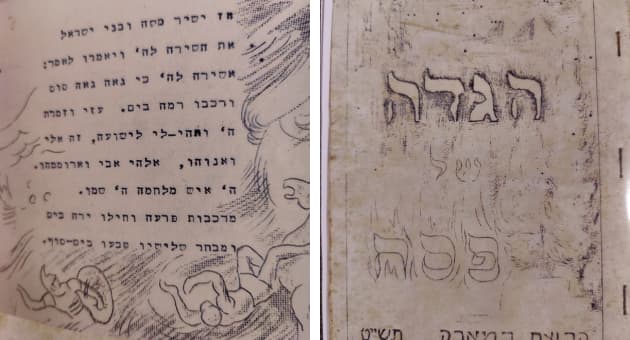 הגדה
של
פסח
קבוצת תש"ט
אז ישיר משה ובני ישראל
את השירה לה' ויאמרו לאמר:
אשירה לה' כי גאה גאה סוס
ורכבו רמה בים. עזי וזמרת
ה' ויהי-לי לישועה, זה אלי
ואנוהו, אלהי אבי וארוממהו.
ה' איש מלחמה ה' שמו.
מרכבות פרעה וחילו ירה בים
ומבחר שלישיו טבעו בים-סוף.